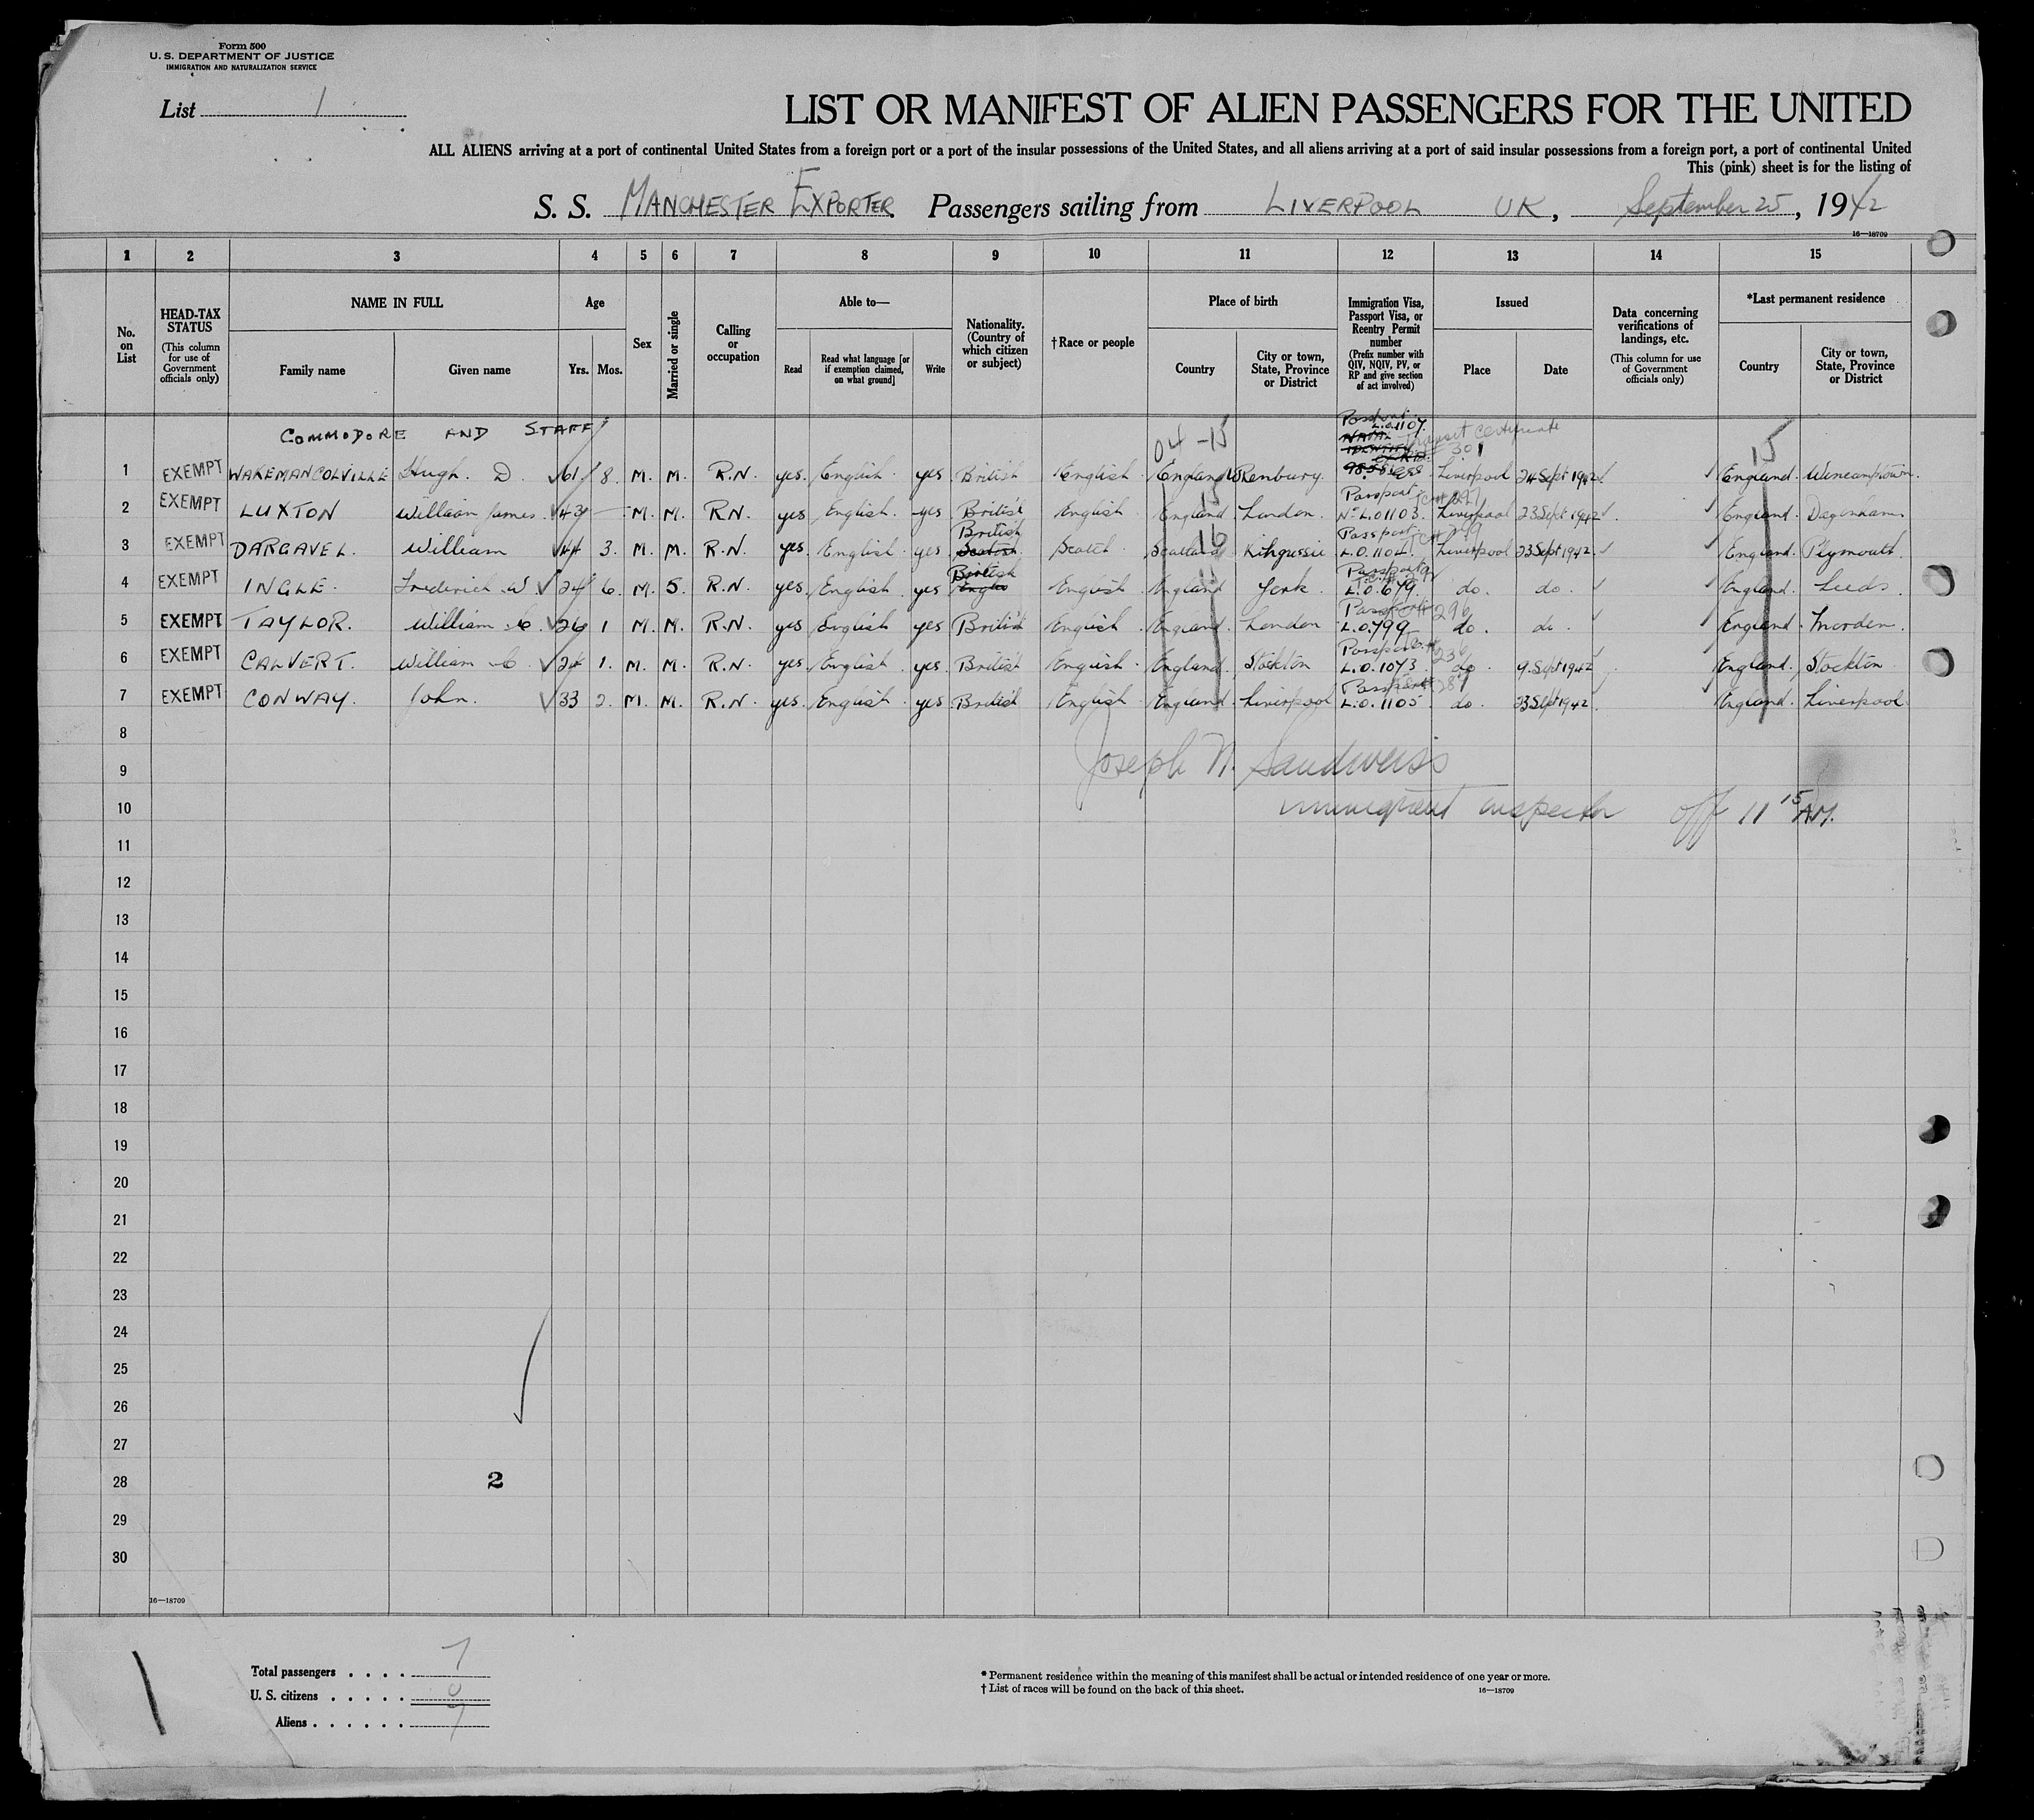 Form 500
U. S. DEPARTMENT OF JUSTICE
IMMIGRATION AND NATURALIZATION SERVICE
List 1
LIST OR MANIFEST OF ALIEN PASSENGERS FOR THE UNITED
ALL ALIENS arriving at a port of continental United States from a foreign port or a port of the insular possessions of the United States, and all aliens arriving at a port of said insular possessions from a foreign port, a port of continental United
This (pink) sheet is for the listing of
S. S. MANCHESTER EXPORTER Passengers sailing from LIVERPOOL UK, September 25, 1942
16—18709
1 2 3 4 5 6 7 8 9 10 11 12 13 14 15
No. on List
HEAD-TAX STATUS (This column for use of Government officials only)
NAME IN FULL Family name Given name
Age Yrs. Mos.
Sex
Married or single
Calling or occupation
Able to— Read Read what language [or if exemption claimed, on what ground] Write
Nationality. (Country of which citizen or subject)
†Race or people
Place of birth Country City or town, State, Province or District
Immigration Visa, Passport Visa, or Reentry Permit number (Prefix number with QIV, NQIV, PV, or RP and give section of act involved)
Issued Place Date
Data concerning verifications of landings, etc. (This column for use of Government officials only)
*Last permanent residence Country City or town, State, Province or District
COMMODORE AND STAFF
04 -15 Passport L.0.1107 Transit Certificate 301 15
1 EXEMPT WAKEMANCOLVILLE Hugh. D. 61 8 M. M. R.N. yes. English. yes British English England Liverpool 24 Sept 1942 England
2 EXEMPT LUXTON William James 43 M. M. R.N. yes English. yes British English. England London. Passport No L.01103. Liverpool 23 Sept 1942 England. Dagenham
3 EXEMPT DARGAVEL. William 44 3. M. M. R.N. yes. English. yes British Scotch. Scotland Passport L.0.1104. Liverpool 23 Sept 1942. England. Plymouth.
4 EXEMPT INGLE. Frederick W 24 6. M. S. R.N. yes. English. yes British English England York. Passport L.0.679. do. do. England. Leeds.
5 EXEMPT TAYLOR. William 26 1 M. M. R.N. yes English yes British English. England London Passport L.0.799 296 do. do. England. Morden.
6 EXEMPT CALVERT. William 24 1. M. M. R.N. yes. English. yes. British English. England. Stockton Passport L.0.1073. 236 do. 9. Sept 1942 England. Stockton
7 EXEMPT CONWAY. John. 33 2. M. M. R.N. yes. English. yes British English. England. Liverpool Passport L.0.1105. do. 23 Sept 1942. England. Liverpool
8
Joseph N. Sandweiss
9
10 immigrant inspector off 11 15 AM.
11
12
13
14
15
16
17
18
19
20
21
22
23
24
25
26
27
28 2
29
30
16—18709
Total passengers . . . . 7
U. S. citizens . . . . . 0
Aliens . . . . . . 7
* Permanent residence within the meaning of this manifest shall be actual or intended residence of one year or more.
† List of races will be found on the back of this sheet. 16—18709